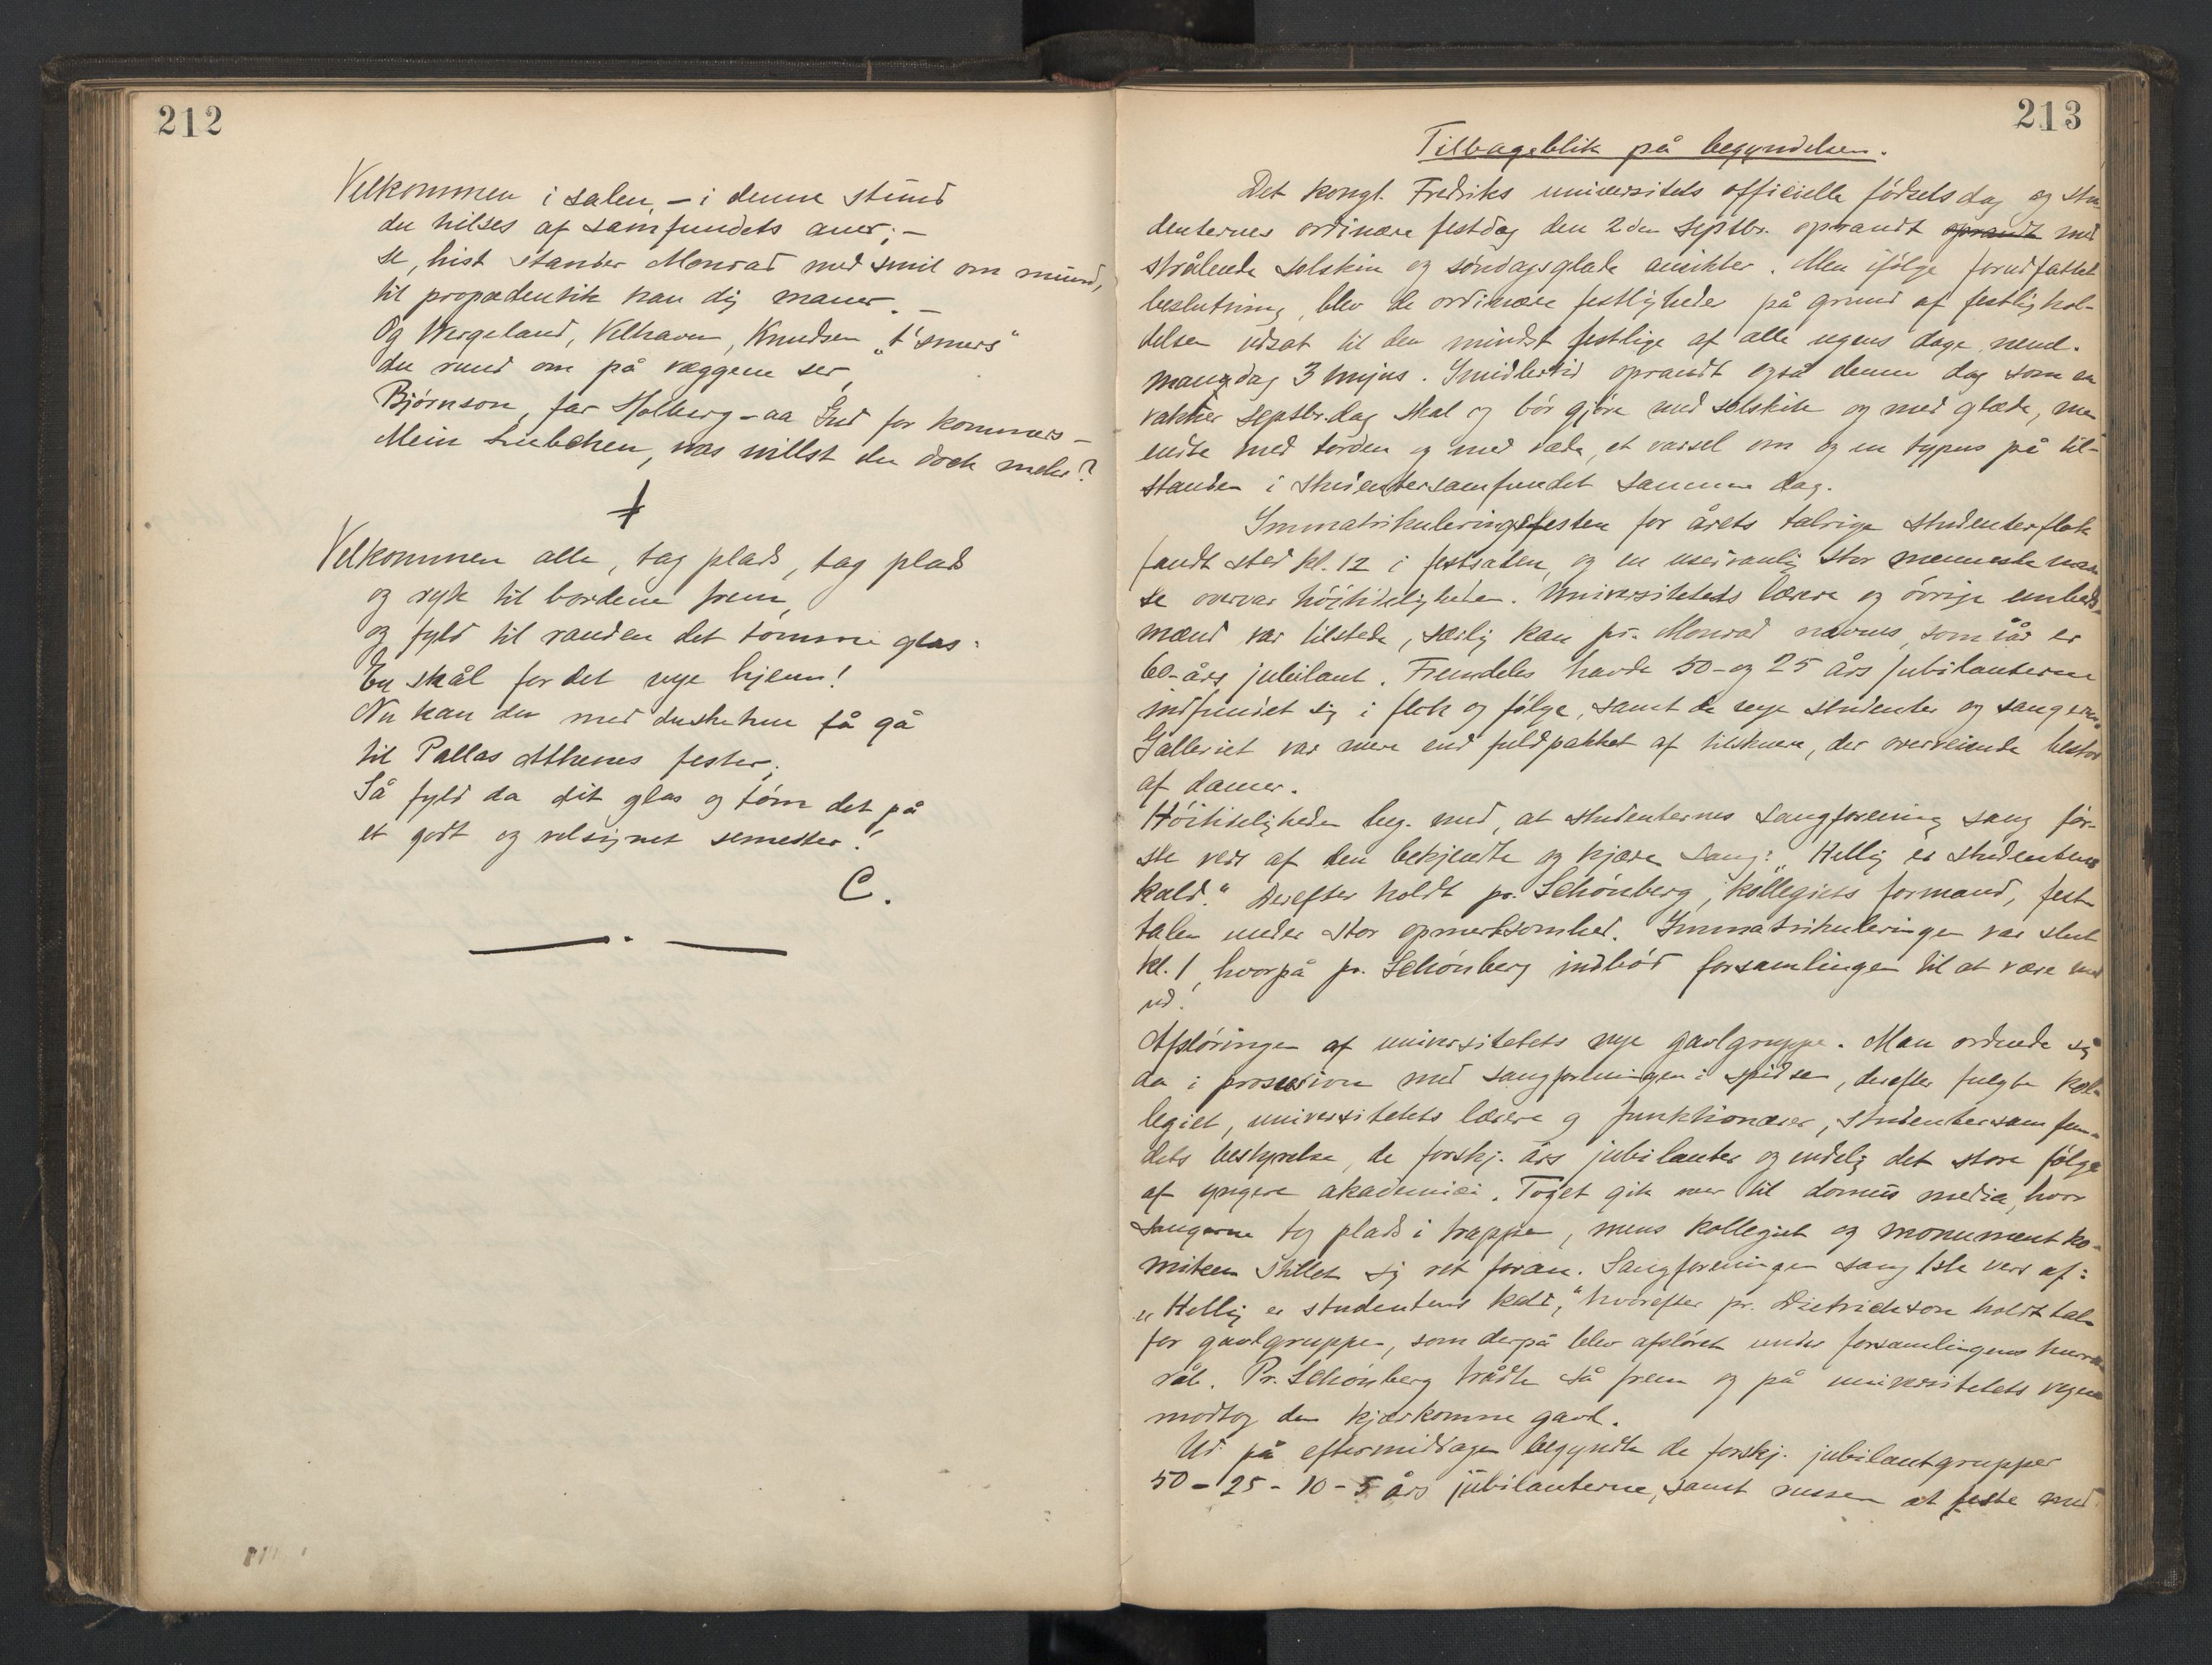 212
Velkommen i salen, – i denne stund
du hilses af samfundets aner; –
se, hist stander Monrad med smil om mund,
til propædentik han dig maner. –
Og Wergeland, Velhaven, Knudsen „t'smers“
du rund om på væggene ser,
Bjørnson, far Holberg – aa Gud for kommers –
Mein Liebchen, was willst du doch mehr?
Velkommen alle, tag plads, tag plads
og ryk til bordene frem,
og fyld til randen det tomme glas:
En skål for det nye hjem!
Nu kan du med duskehue få gå
til Pallas Athenes fester;
Så fyld da dit glas og tøm det på
et godt og velsignet semester!
C.
213
Tilbageblik på begyndelsen.
Det kongl. Fredriks universitets officielle fødselsdag og stu-
denternes ordinære festdag den 2den septbr. oprandt oprandt med
strålende solskin og søndagsglade ansikter. Men ifølge forudfattet
beslutning, blev de ordinære festligheder på grund af festlighol-
delsen udsat til den mindst festlige af alle ugens dage nml.
mandag 3 hujus. Imidlertid oprandt også denne dag som en
vakker septbr.dag skal og bør gjøre med solskin og med glæde, men
endte med torden og med væde, et varsel om og en typus på til-
standen i studentersamfundet samme dag.
Immatrikuleringsfesten for årets talrige studenterflok
fandt sted kl. 12 i festsalen, og en usedvanlig stor menneskemas
se overvar høitideligheden. Universitetets lærere og øvrige embeds-
mænd var tilstede, særlig kan pr. Monrad nævnes, som iår er
60-års jubilant. Fremdeles havde 50- og 25 års jubilanterne
indfundet sig i flok og følge, samt de nye studenter og sangerne.
Galleriet var mere end fuldpakket af tilskuere, der overveiende bestod
af damer.
Høitideligheden beg. med, at studenternes sangforening sang før-
ste vers af den bekjendte og kjære sang: „Hellig er studentens
kald.“ Derefter holdt pr. Schønberg, kollegiets formand, fest
talen under stor opmerksomhed. Immatrikuleringen var slut
kl. 1, hvorpå pr. Schønberg indbød forsamlingen til at være med
ved
Afsløringen af universitetets nye gavlgruppe. Man ordnede sig
da i prosession med sangforeningen i spidsen, derefter fulgte kol-
legiet, universitetets lærere og funktionærer, studentersamfun-
dets bestyrelse, de forskj. års jubilanter og endelig det store følge
af yngere akademici. Toget gik over til domus media, hvor
sangerne tog plads i trappen, mens kollegiet og monumentko-
miteen stillet sig ret foran. Sangforeningen sang 1ste vers af:
„Hellig er studentens kald,“ hvorefter pr. Dietrichson holdt tale
for gavlgruppen, som derpå blev afsløret under forsamlingens hurra
råb. Pr. Schønberg trådte så frem og på universitetets vegne
modtog den kjærkomne gave.
Ud på eftermiddagen begyndte de forskj. jubilantgrupper
50 - 25 - 10 - 5 års jubilanterne, samt russen at feste med